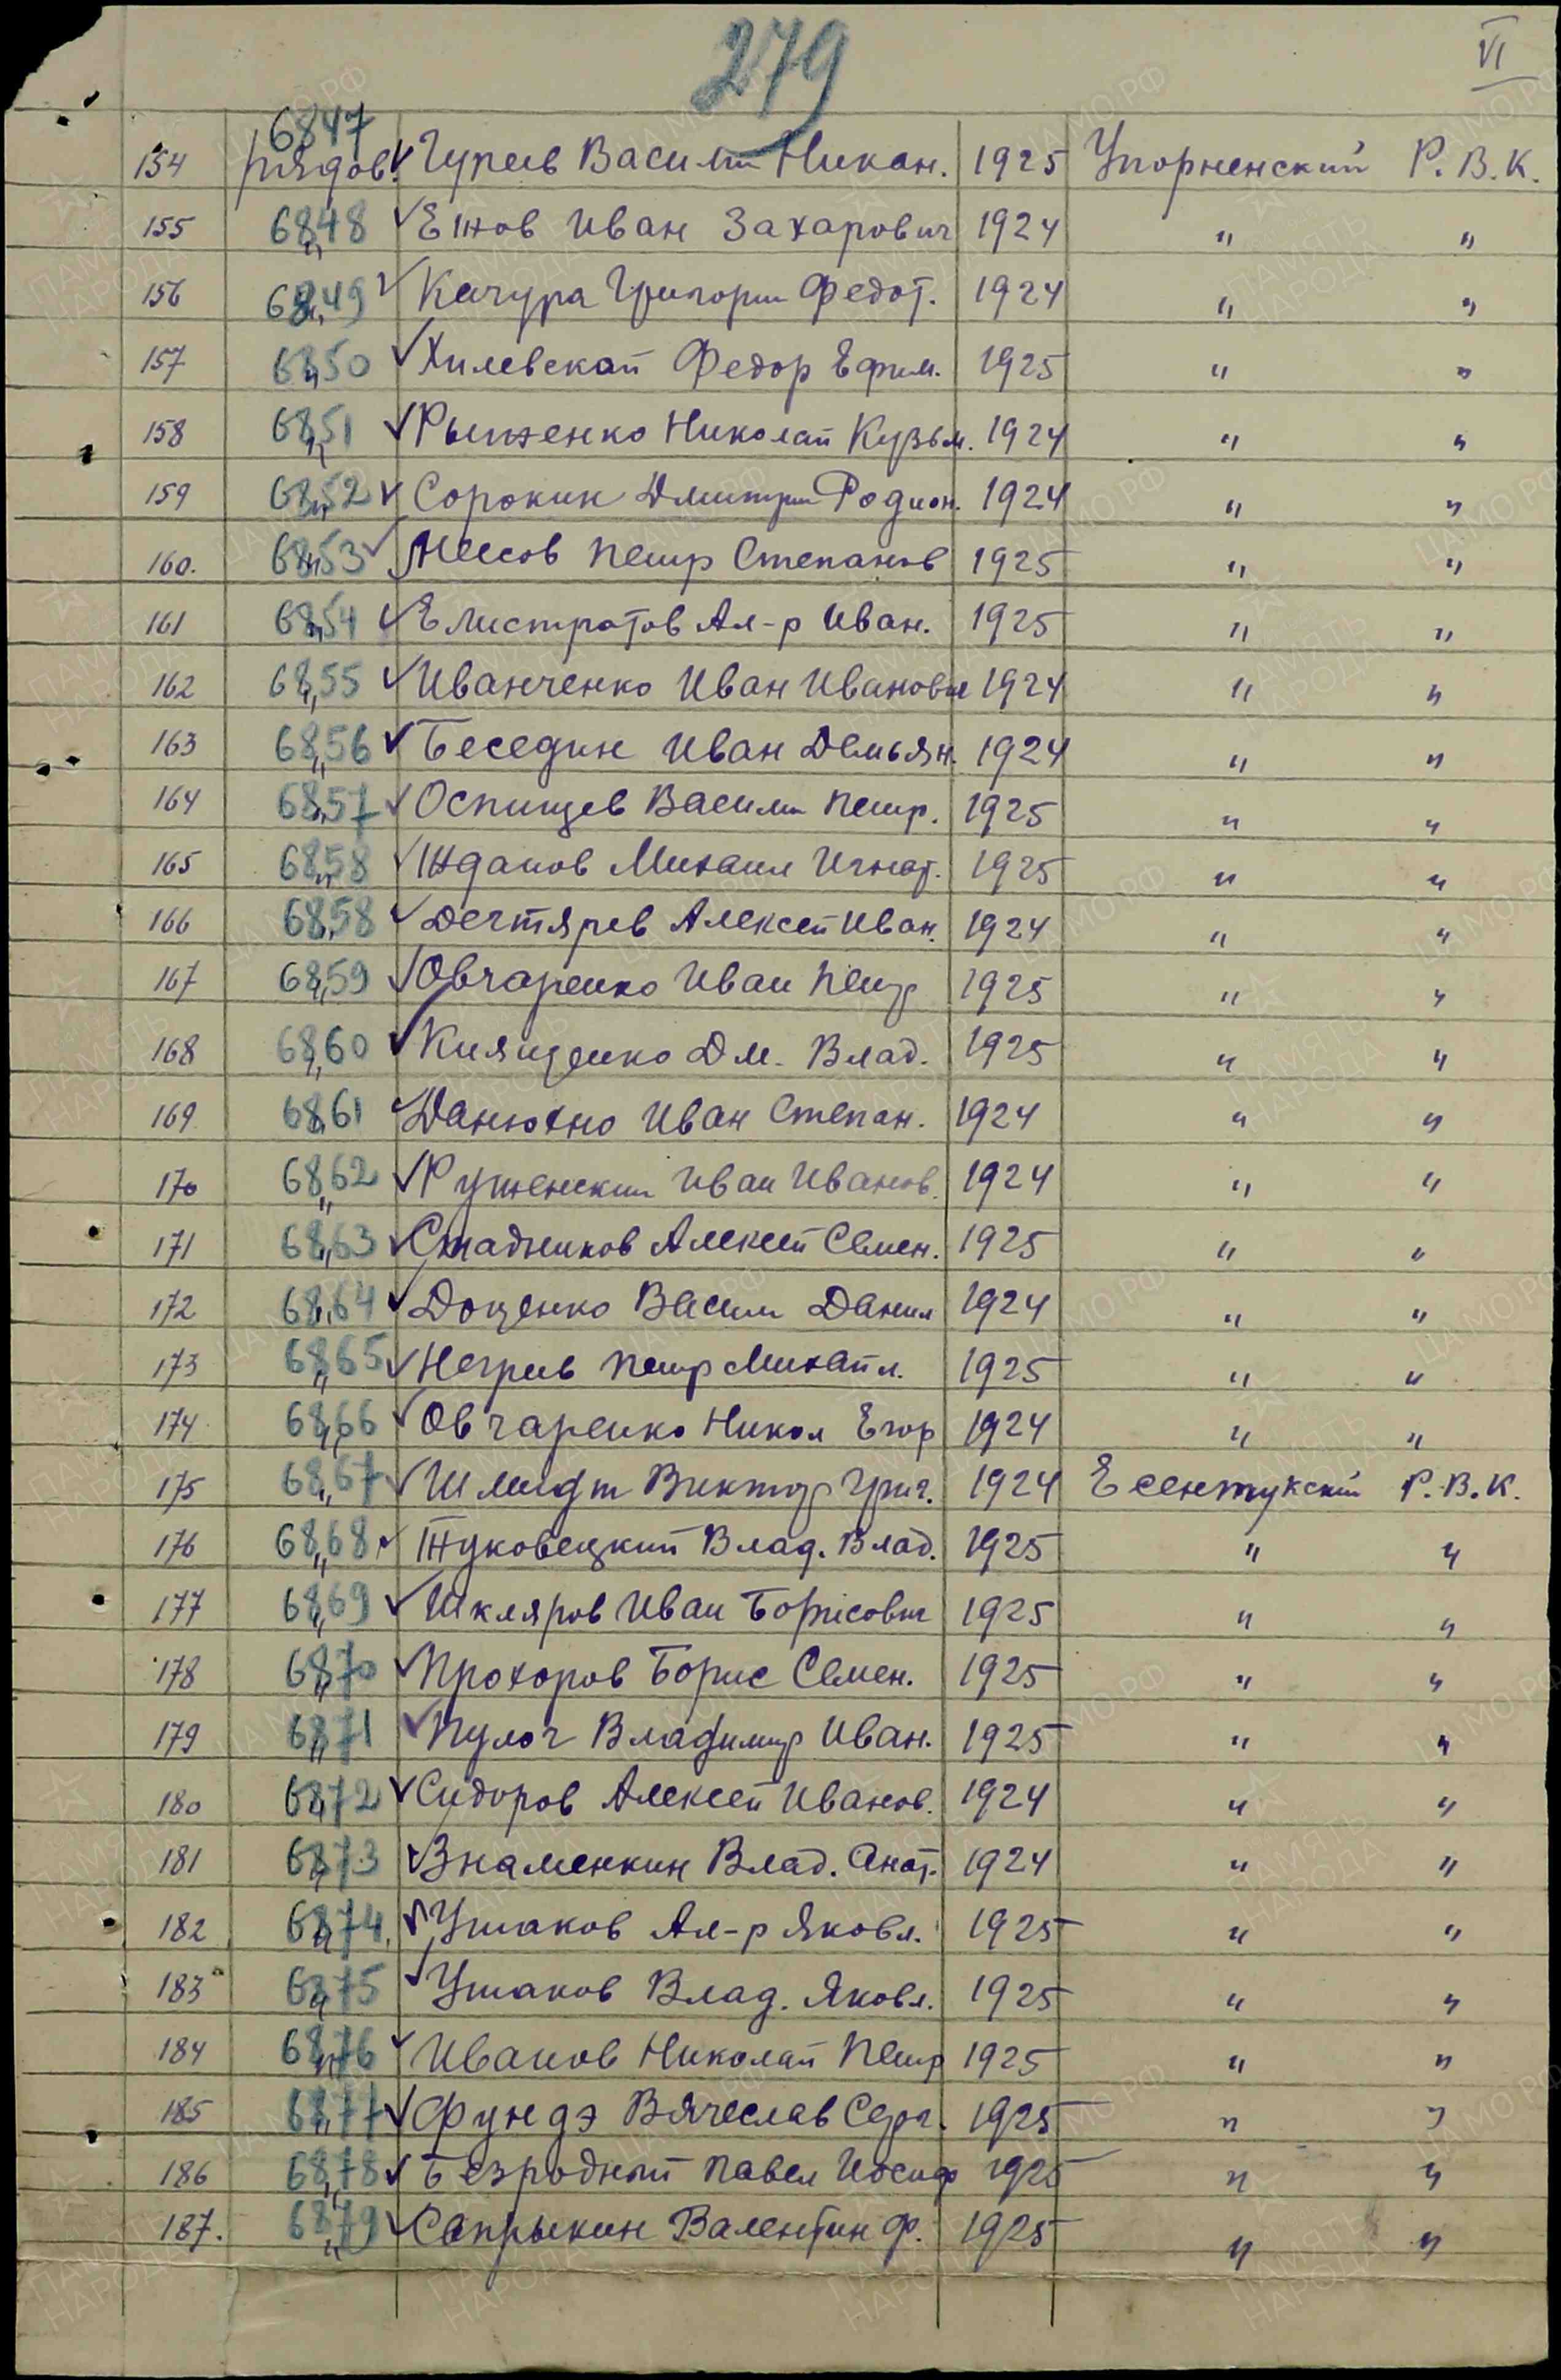 279
VI
6847
154 рядов. Гуреев Василий Никан. 1925 Упорненский Р.В.К.
155 6848 " Ежов Иван Захарович 1924 " "
156 6849 " Качура Григорий Федот. 1924 " "
157 6850 " Хилевской Федор Ефим. 1925 " "
158 6851 " Рыженко Николай Кузьм. 1924 " "
159 6852 " Сорокин Дмитрий Родион. 1924 " "
160. 6853 " Петр Степанов 1925 " "
161 6854 " Елистратов Ал-р Иван. 1925 " "
162 6855 " Иванченко Иван Иванович 1924 " "
163 6856 " Беседин Иван Демьян. 1924 " "
164 6857 " Оспищев Василий Петр. 1925 " "
165 6858 " Жданов Михаил Игнат. 1925 " "
166 6858 " Дегтярев Алексей Иван. 1924 " "
167 6859 " Овчаренко Иван Петр 1925 " "
168 6860 " Киященко Дм. Влад. 1925 " "
169 6861 " Данюхно Иван Степан. 1924 " "
170 6862 " Руженский Иван Иванов. 1924 " "
171 6863 " Стадников Алексей Семен. 1925 " "
172 6864 " Доценко Васили Данил 1924 " "
173 6865 " Негреев Петр Михайл. 1925 " "
174 6866 " Овчаренко Никол Егор 1924 " "
175 6867 " Шмидт Виктор Григ. 1924 Есентукский Р.В.К.
176 6868 " Жуковецкий Влад. Влад. 1925 " "
177 6869 " Шкляров Иван Борисович 1925 " "
178 6870 " Прохоров Борис Семен. 1925 " "
179 6871 " Пулог Владимир Иван. 1925 " "
180 6872 " Сидоров Алексей Иванов. 1924 " "
181 6873 " Знаменкин Влад. Анат. 1924 " "
182 6874 " Ушаков Ал-р Яковл. 1925 " "
183 6875 " Ушаков Влад. Яковл. 1925 " "
184 6876 " Иванов Николай Петр 1925 " "
185 6877 " Фундэ Вячеслав Серг. 1925 " "
186 6878 " Безродный Павел Иосиф 1925 " "
187. 6879 " Сапрыкин Валентин Ф. 1925 " "